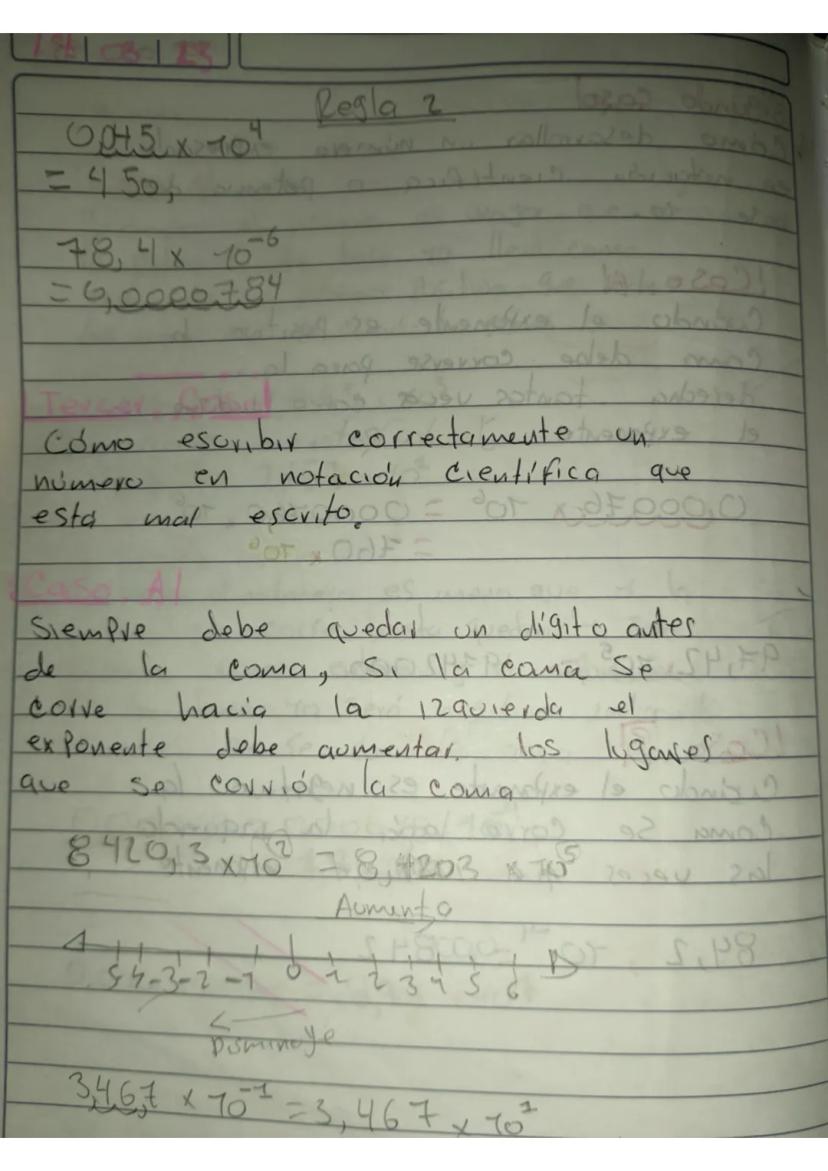 Regla 2
0,045 x 10⁴
= 450,
78,4 x 10⁻⁶
= 0,0000784
Tercer
Cómo escribir correctamente un
número en notación científica que
esta mal escrito.
Caso. A|
Siempre debe quedar un dígito antes
de la coma, Si la coma se
corve hacia la izquierda el
exponente debe aumentar. los lugares
que se corrió la coma
8420,3 x 10² = 8,4203 x 10⁵
Aumenta
5 4 -3 -2 -1 0 1 2 3 4 5 6
Disminuye
3,46,7 x 10⁻¹ = 3,467 x 10¹